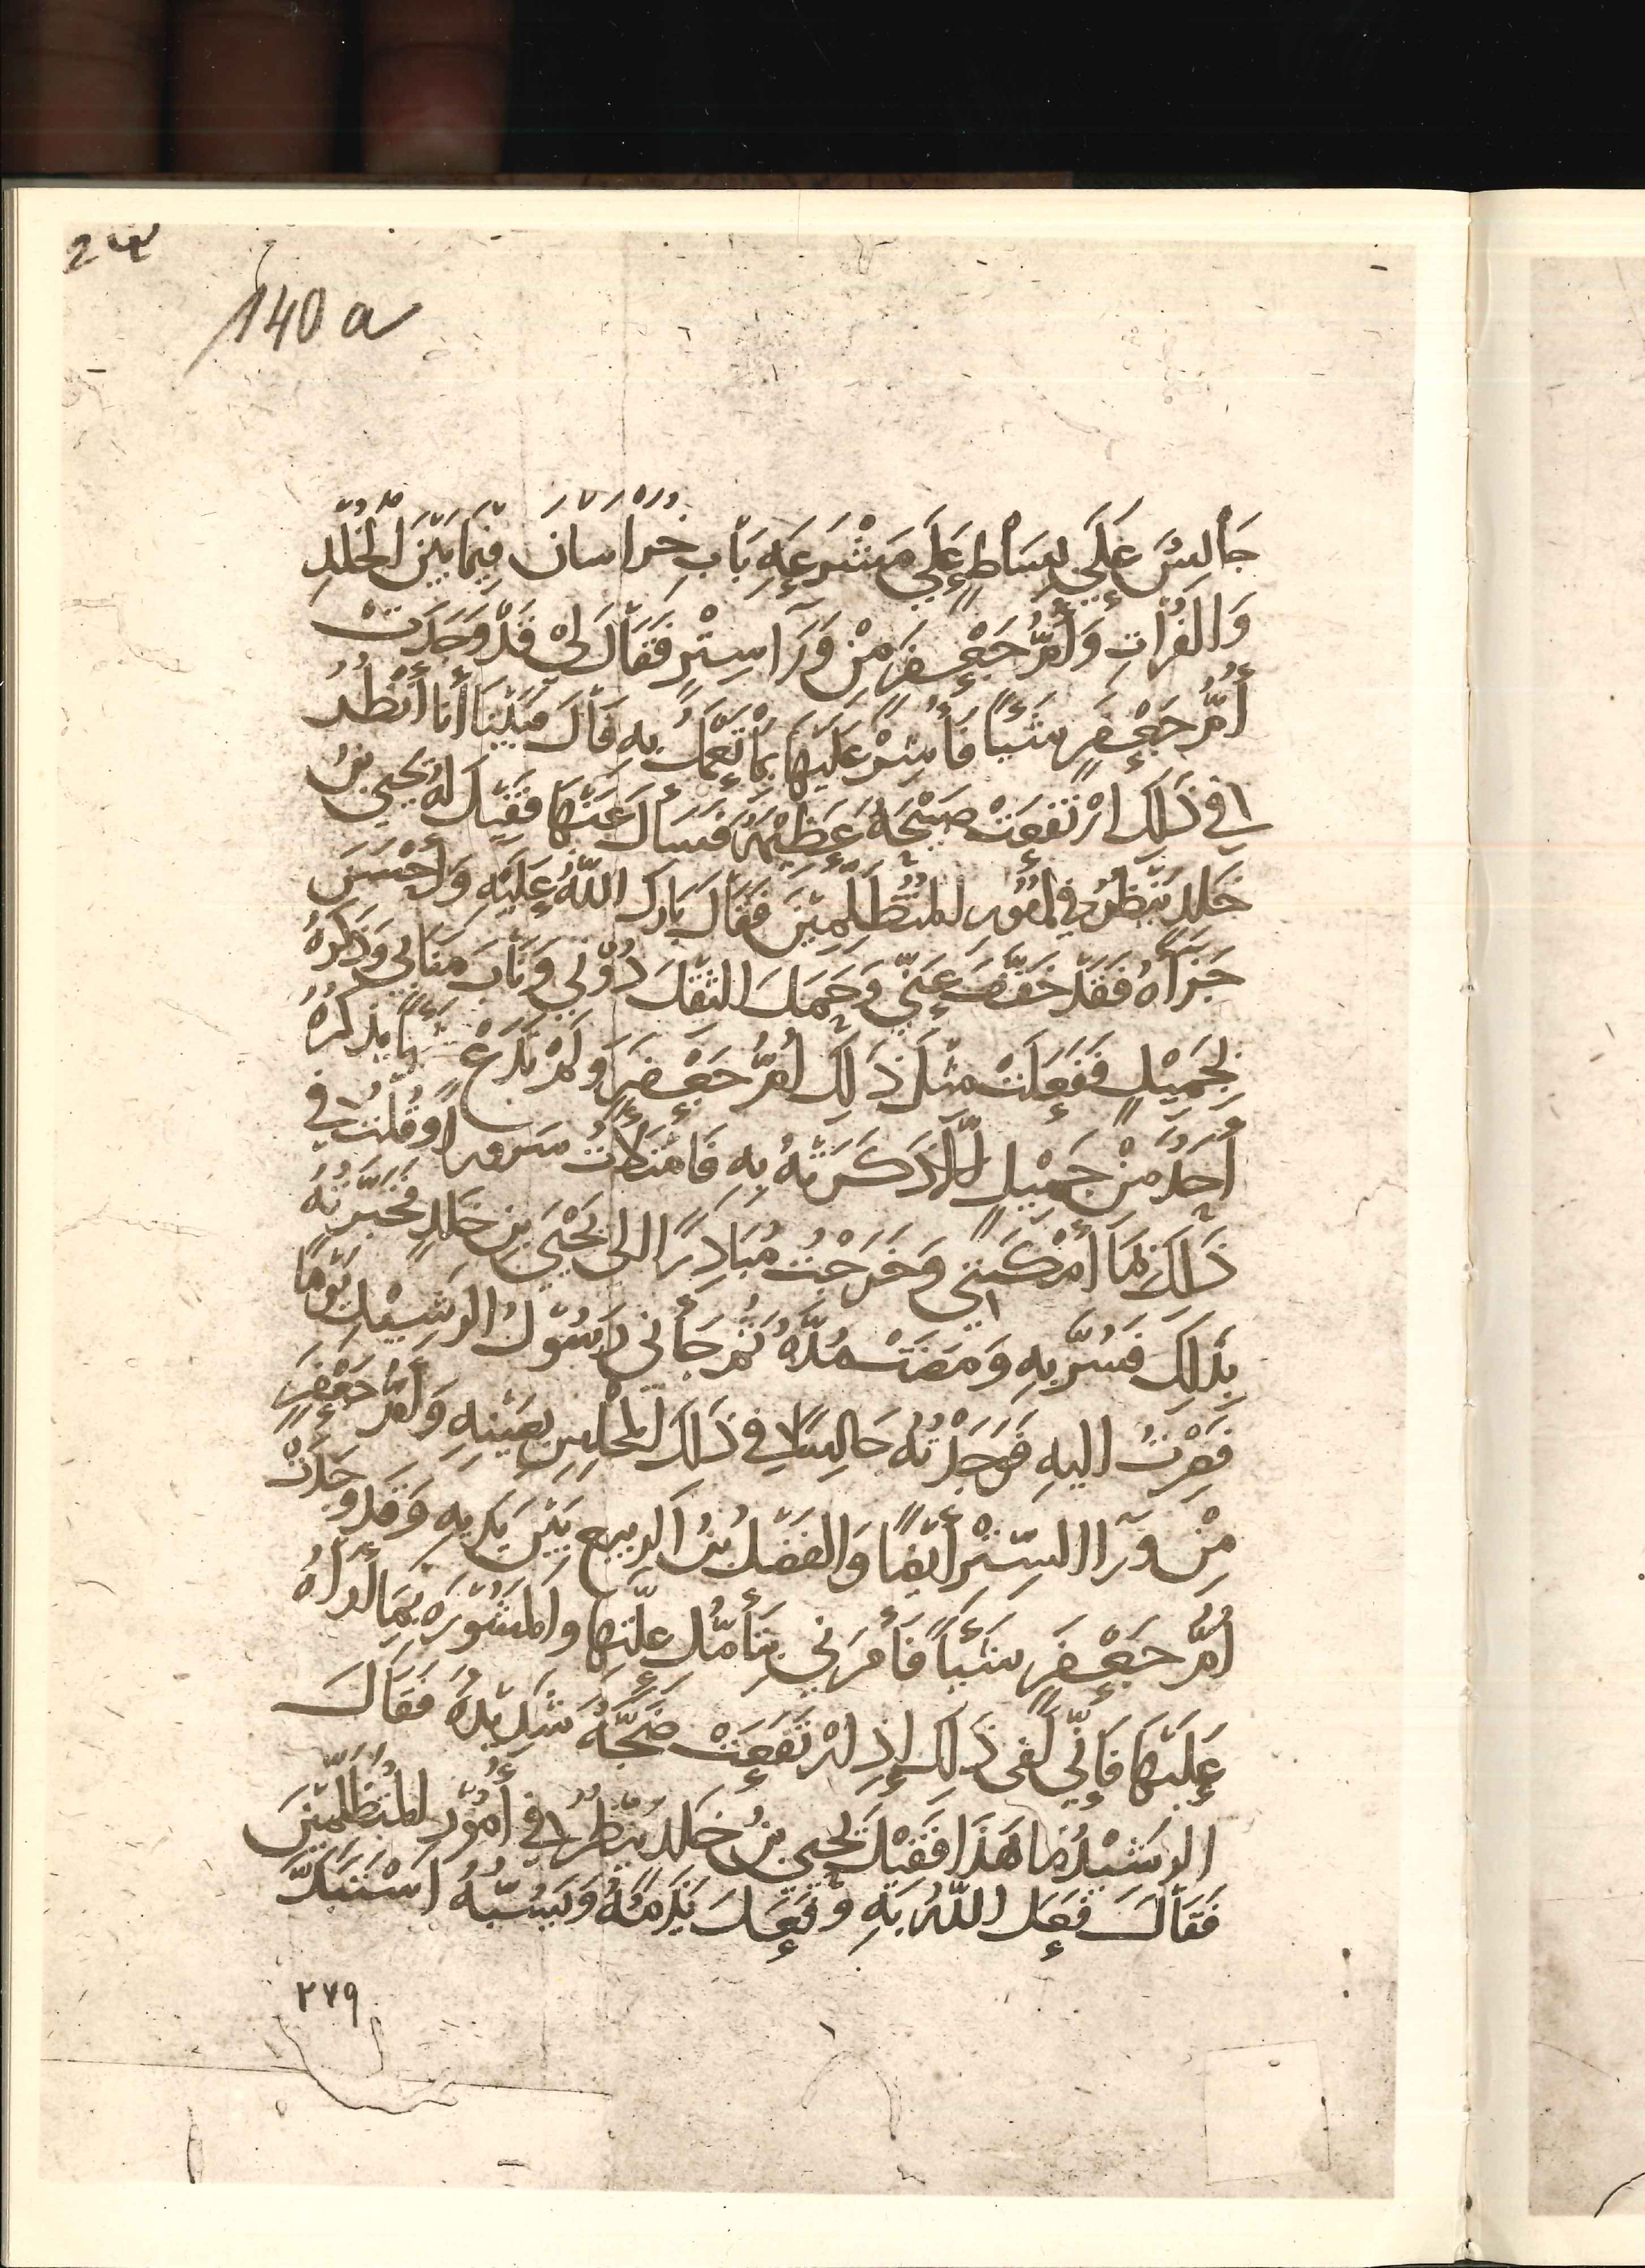 140 a
جَالِسٌ عَلَي بِسَاطٍ عَلَي مَشْرَعَهِ بَابِ خُرَاسَانَ فِيْمَا بَيْنَ الْخُلْدِ
وَالفُرَاتِ وَأُمُّ جَعْفَرٍ مِنْ وَرَآ سِتْرٍ فَقَالَ لِيْ قَدْ وَجَدَتْ
أُمُّ جَعْفَرٍ شَئْيًا فَأَشِرْ عَلَيْهَا بِمَا تَعْمَلُ بِهِ قَالَ فَبَيْنَا أَنَا أَنْظُرُ
فِي ذَلِكَ ارْتَفَعَتْ صَيْحَهٌ عَظِيْمَهٌ فَسَأَلَ عَنْهَا فَقِيْلَ لَهُ يَحْيَي بْنُ
خَلِدٍ يَنْظُرُ فِي أُمُوْرِ الْمُتَظَلِّمِيْنَ فَقَالَ بَارَكَ اللّهُ عَلَيْهِ وَأَحْسَنَ
جَزَآهُ فَقَدْ خَفَّفَ عَنِّي وَحَمَلَ الثِقْلَ دُوْنِي وَنَابَ مَنَابِي وَذَكَرَهُ
بِجَمِيْلٍ فَفَعَلَتْ مِثْلَ ذَلِكَ أُمُّ جَعْفَرٍ وَلَمْ تَدَعْ شَيْئًا يَذْكُرُهُ
أَحَدٌ مِنْ جَمِيْلٍ إِلَّا ذَكَرَتْهُ بِهِ فَامْتَلَأْتُ سُرُورًا وَقُلْتُ فِي
ذَلِكَ مَا أَمْكَنَنِي وَخَرَجْتُ مُبَادِرًا إلى يَحْيَي بنِ خَلِدٍ فَخَبَّرْتُهُ
بِذَلِكَ فَسُرَّ بِهِ وَمَضَتْ مُدَّهٌ ثُمَّ جَأَنِي رَسُوْلُ الرَشِيْدِ يَوْمًا
فَصِرْتُ اليهِ فَوَجَدْتُهُ جَالِسًا فِي ذَلِكَ الْمَجْلِسِ بِعَيْنِهِ وَأُمُّ جَعْفَرٍ
مِنْ وَرَاالسِتْرِ أَيْضًا وَالفَضْلُ بْنُ الرَبِيعِ بَيْنَ يَدَيهِ وَقَدْ وَجَدَتْ
أُمُّ جَعْفَرٍ شَئْيًا فَأَمَرَنِي بِتَأَمُّلِ عِلَّتِهَا وَالْمَشُوْرَهِ بِمَا أَرَاهُ
عَلَيْهَا فَإِنِّي لَفِي ذَلِكَ إِذِ ارْتَفَعَتْ ضَجَّهٌ شَدِيْدَهٌ فَقَالَ
الرَشِيْدُ مَا هَذَا فَقِيْلَ يَحْيَي بْنُ خَلِدٍ يَنْظُرُ فِي أُمُوْرِ الْمُتَظَلِّمِيْنَ
فَقَالَ فَعَلَ اللّهُ بِهِ وَفَعَلَ يَذُمُّهُ وَيَسُبُّهُ اسْتَبَدَّ
٢٧٩